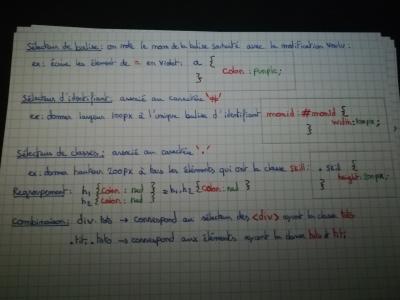 Sélecteur de balise: on note le nom de la balise souhaité avec la modification voulu:
ex: écrire les élément de a en violet: a {
color: purple;
}
Sélecteur d'identifiant: associé au caractère "#"
ex: donner largeur 100px à l'unique balise d'identifiant monid: #monId {
width: 100px;
}
Sélecteur de classes: associé au caractère "."
ex: donner hauteur 200px à tous les éléments qui ont la classe skill: .skill {
height: 200px;
}
Regroupement: h1 {color: red } = h1, h2 {color: red }
h2 {color: red }
Combinaison: div.toto → correspond au sélecteur des <div> ayant la classe toto
.titi.toto → correspond aux éléments ayant la classe toto et titi